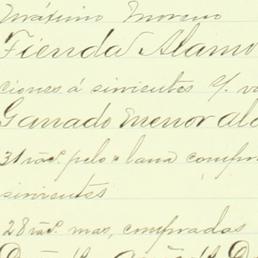 Máximo Moreno
Tienda Alamo
ciones á sirvientes c/. va
Ganado menor al c
31 vās. pelo e lana compra
sirvientes
28 vās. mas, compradas